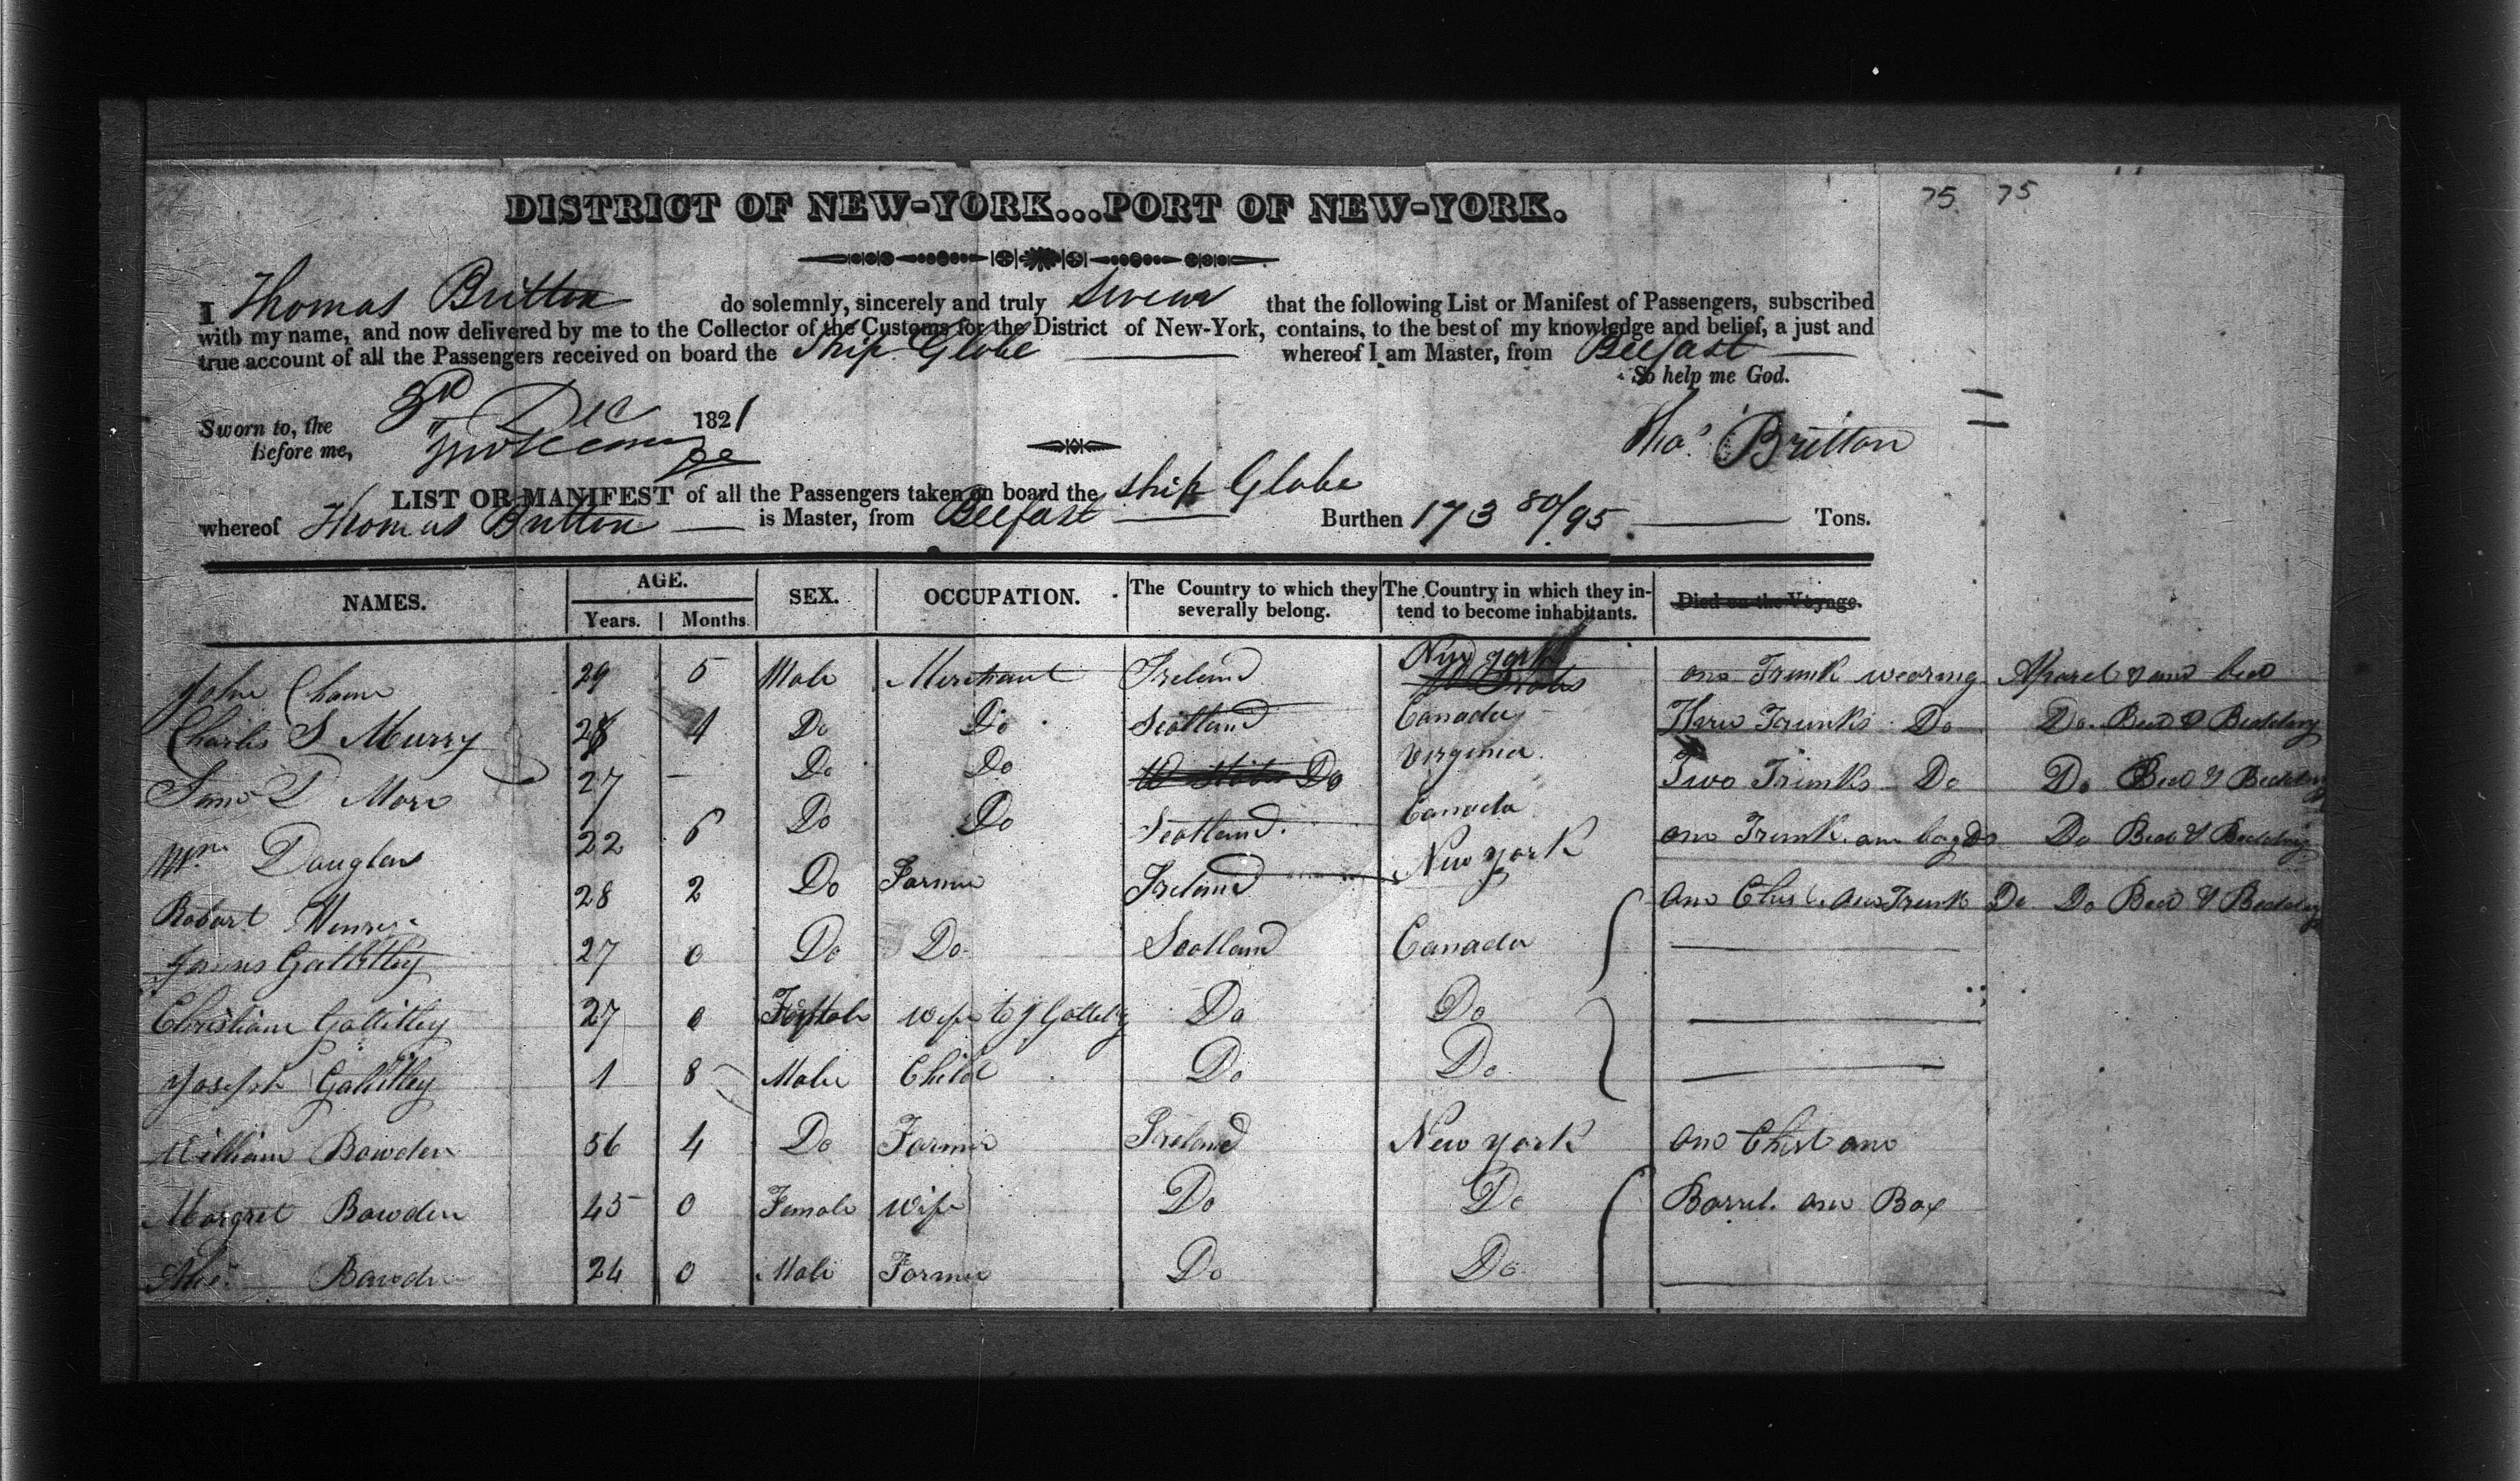 75 75
DISTRICT OF NEW-YORK...PORT OF NEW-YORK.
I Thomas Britton do solemnly, sincerely and truly swear that the following List or Manifest of Passengers, subscribed
with my name, and now delivered by me to the Collector of the Customs for the District of New-York, contains, to the best of my knowledge and belief, a just and
true account of all the Passengers received on board the Ship Globe whereof I am Master, from Belfast
So help me God.
Sworn to, the 3d Dec 1821
Before me,
Thos Britton
LIST OR MANIFEST of all the Passengers taken on board the Ship Globe
whereof Thomas Britton is Master, from Belfast Burthen 173 80/95 Tons.
NAMES. AGE. Years. Months. SEX. OCCUPATION. The Country to which they severally belong. The Country in which they intend to become inhabitants. Died on the Voyage.
John 29 5 Male Merchant Ireland New York one Trunk wearing Aparel & one bed
Charles S Murry 28 4 Do Do Scotland Canada Three Trunks Do Do Bed & Bedding
D More 27 – Do Do Do Virginia Two Trunks Do Do Bed & Bedding
Wm Douglas 22 6 Do Do Scotland Canada one Trunk one bag Do Do Bed & Bedding
Robart Henry 28 2 Do Farmer Ireland New York One Chest one Trunk Do Do Bed & Bedding
James Gallitley 27 0 Do Do Scotland Canada
Christian Gallitley 27 0 Female wife to J Gallitley Do Do
Joseph Gallitley 1 8 Male Child Do Do
William Bowden 56 4 Do Farmer Ireland New York One Chest one
Margret Bowden 45 0 Female Wife Do Do Barrel one Box
Bowden 24 0 Male Farmer Do Do